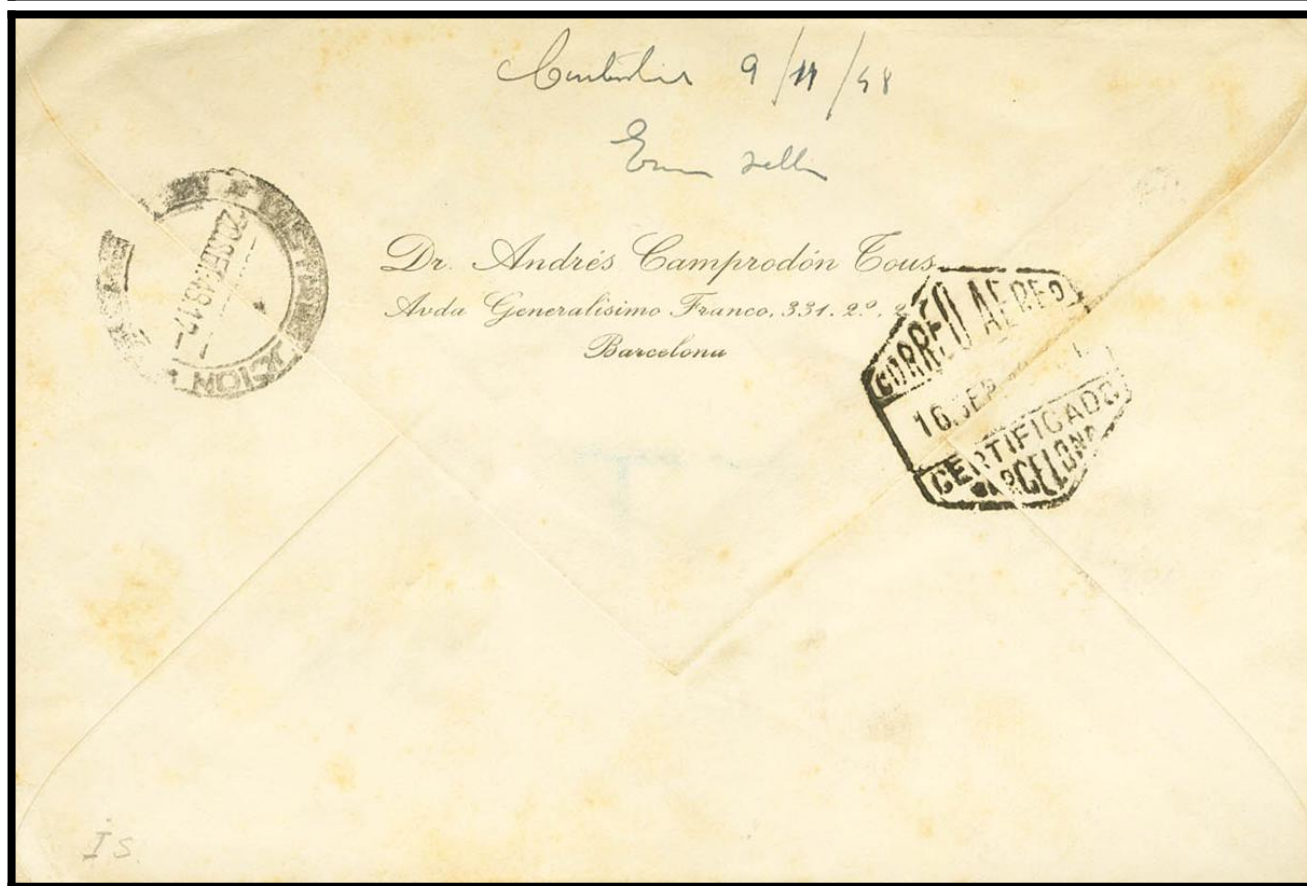 9/11/48
Dr. Andrés Camprodón Tous
Avda Generalisimo Franco, 331. 2º, 2
Barcelona
CORREO AEREO
16.SEP
CERTIFICADO
BARCELONA
20.SET.48.17-
IS.